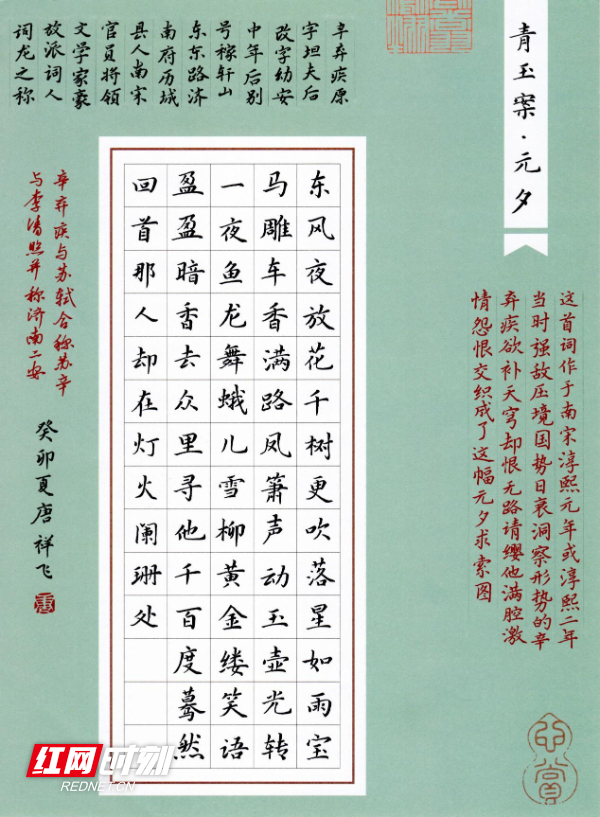 青玉案·元夕
辛弃疾原
字坦夫后
改字幼安
中年后别
号稼轩山
东东路济
南府历城
县人南宋
官员将领
文学家豪
放派词人
词龙之称
这首词作于南宋淳熙元年或淳熙二年
当时强敌压境国势日衰洞察形势的辛
弃疾欲补天穹却恨无路请缨他满腔激
情怨恨交织成了这幅元夕求索图
东风夜放花千树更吹落星如雨宝
马雕车香满路凤箫声动玉壶光转
一夜鱼龙舞蛾儿雪柳黄金缕笑语
盈盈暗香去众里寻他千百度蓦然
回首那人却在灯火阑珊处
辛弃疾与苏轼合称苏辛
与李清照并称济南二安
癸卯夏唐祥飞
红网时刻
REDNET.CN